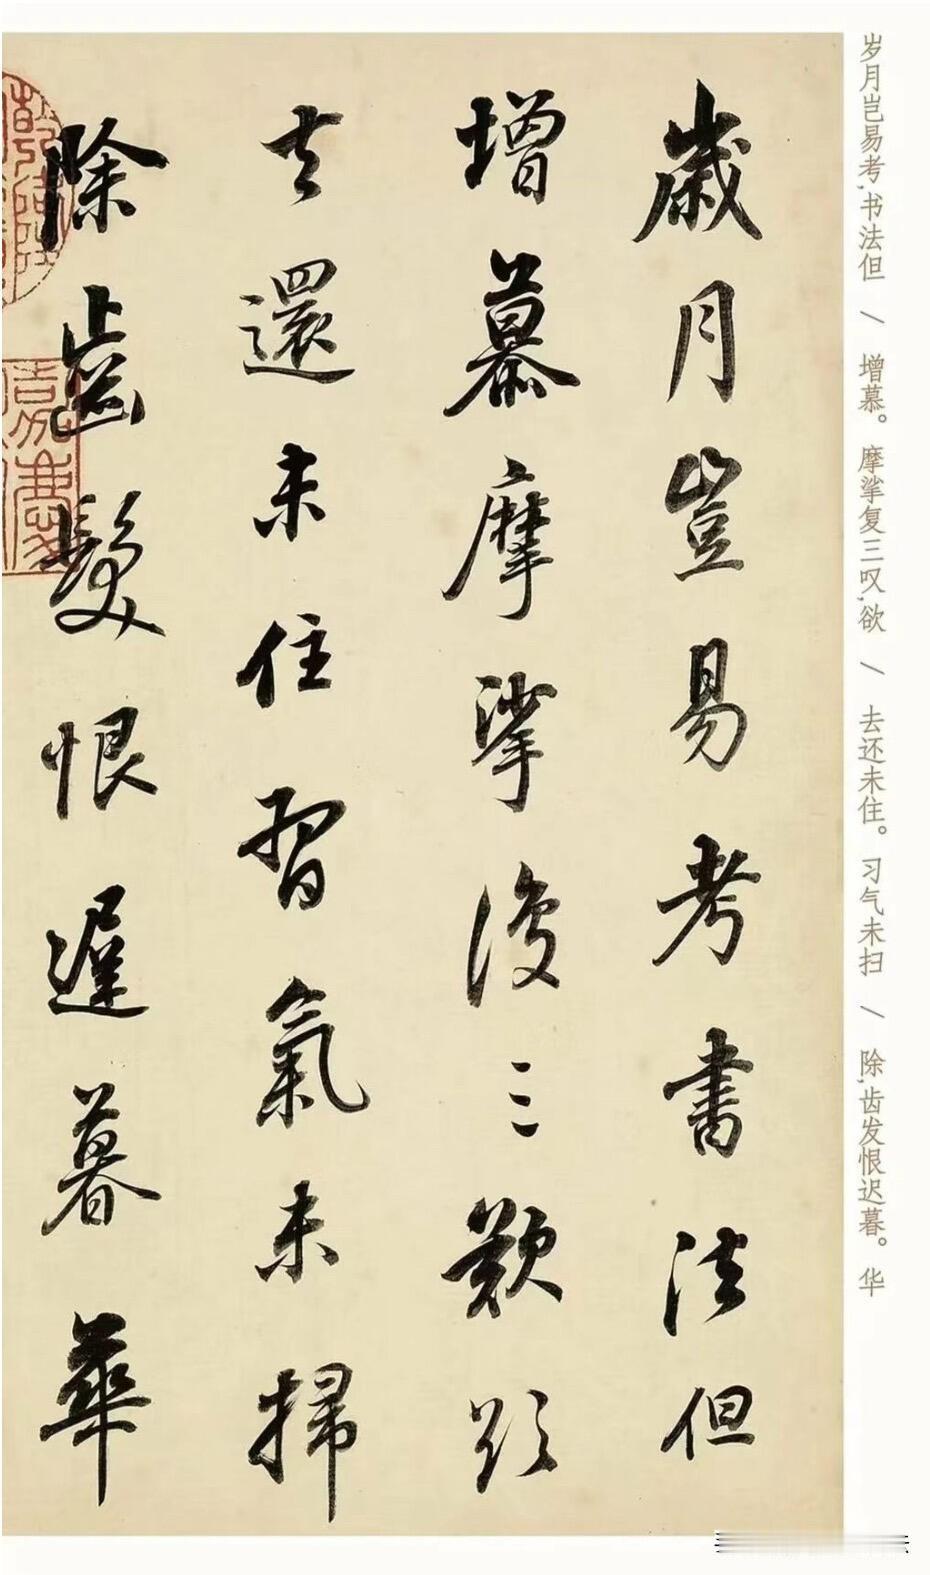 岁月岂易考,书法但 / 增慕。摩挲复三叹,欲 / 去还未住。习气未扫 / 除,齿发恨迟暮。华
歲月豈易考書法但
增慕摩挲復三歎欲
去還未住習氣未掃
除齒髮恨遲暮華